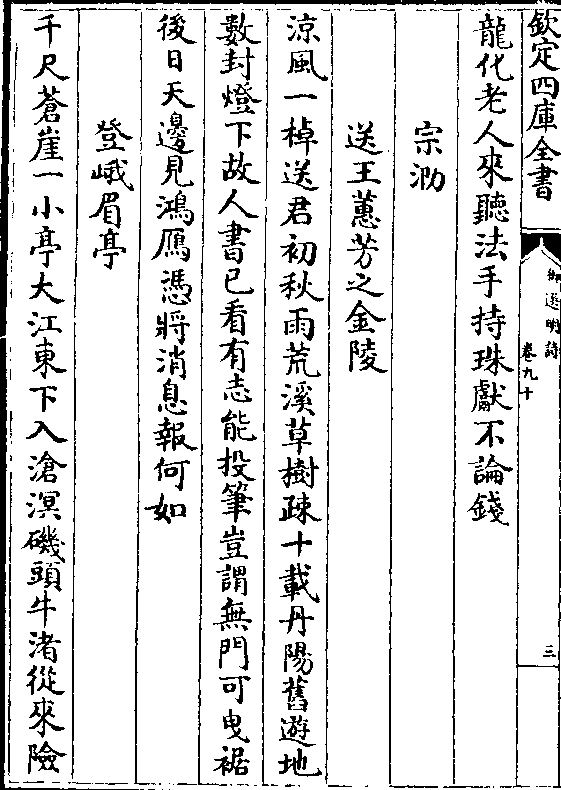 欽定四庫全書
御選明詩
卷九十
三
龍化老人來聽法手持珠獻不論錢
宗泐
送王蕙芳之金陵
涼風一棹送君初秋雨荒溪草樹疎十載丹陽舊遊地
數封燈下故人書已看有志能投筆豈謂無門可曳裾
後日天邊見鴻鴈憑將消息報何如
登峨眉亭
千尺蒼崖一小亭大江東下入滄溟磯頭牛渚從來險